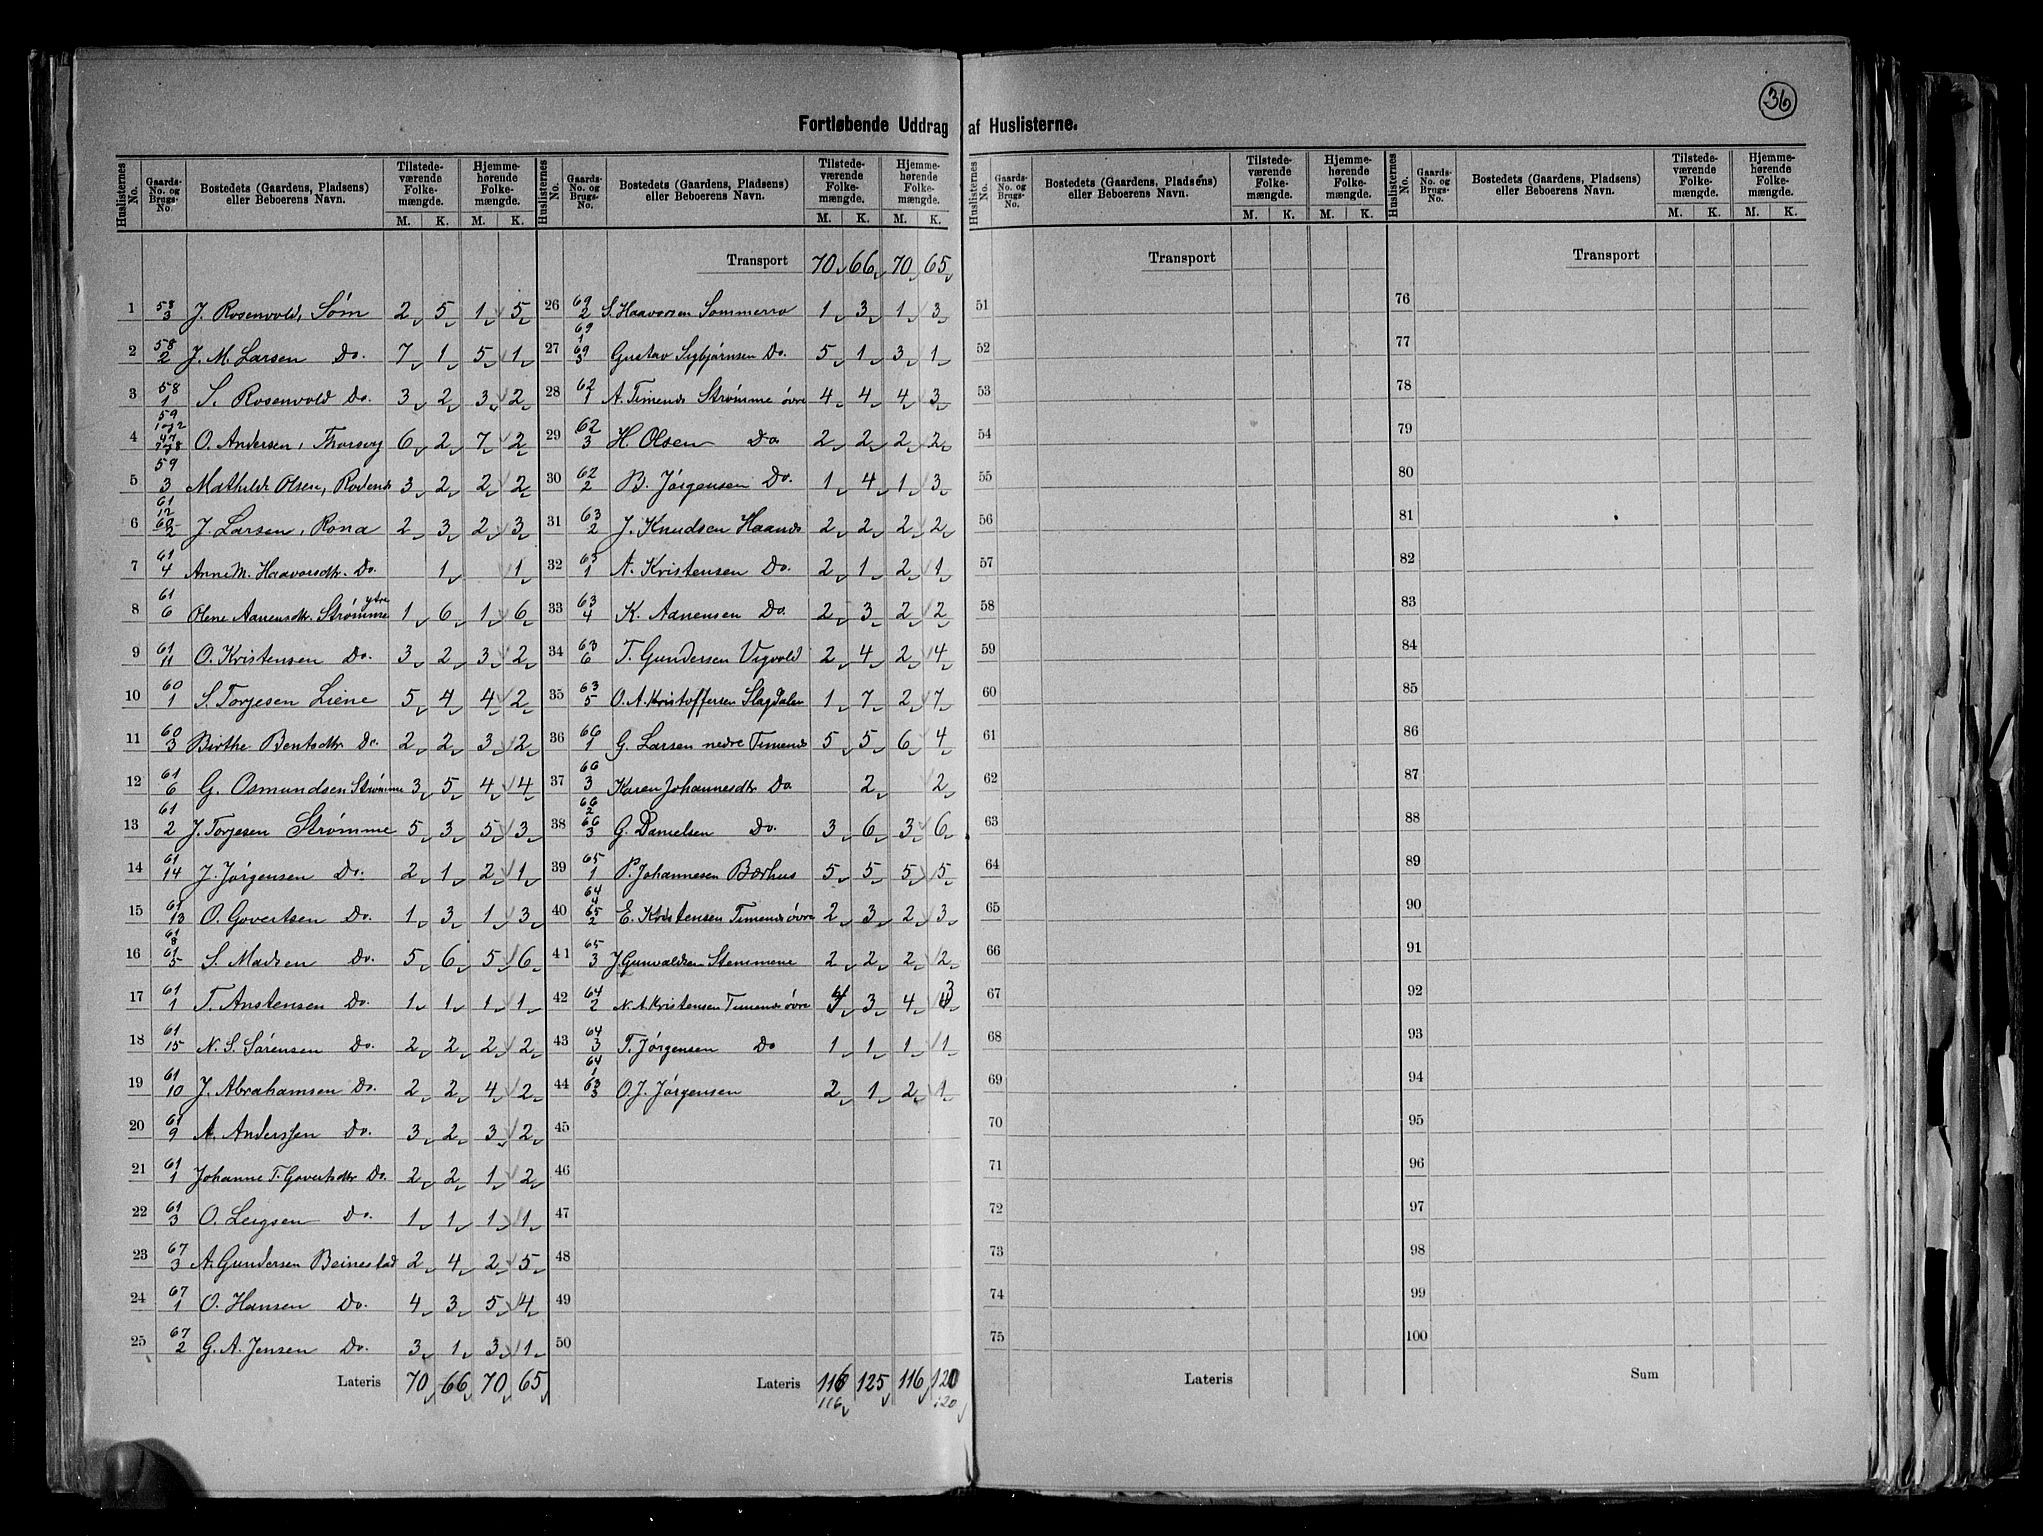 36
Fortløbende Uddrag af Huslisterne.
Huslisternes No. | Gaards-No. og Brugs-No. | Bostedets (Gaardens, Pladsens) eller Beboerens Navn. | Tilstedeværende Folkemængde. M. K. | Hjemmehørende Folkemængde. M. K.
1 58/3 J. Rosenvold, Søm 2 5 1 5
2 58/2 J. M. Larsen Do. 7 1 5 1
3 58/1 S. Rosenvold Do. 3 2 3 2
4 59/1og2 47/7og8 O. Andersen, Thorsvig 6 2 7 2
5 59/3 Mathilde Olsen, Rodenes 3 2 2 2
6 61/12 60/2 J. Larsen, Rona 2 3 2 3
7 61/4 Anne M. Haavorsdtr. Do. 1 1
8 61/6 Olene Aanensdtr. Strømme ytre 1 6 1 6
9 61/11 O. Kristensen Do. 3 2 3 2
10 60/1 S. Torjesen Liene 5 4 4 2
11 60/3 Birthe Bentsdtr Do. 2 2 3 2
12 61/6 G. Osmundsen Strømme 3 5 4 4
13 61/2 J. Torjesen Strømme 5 3 5 3
14 61/14 J. Jørgensen Do. 2 1 2 1
15 61/13 O. Govertsen Do. 1 3 1 3
16 61/8 61/5 S. Madsen Do. 5 6 5 6
17 61/1 T. Anstensen Do. 1 1 1 1
18 61/15 N. S. Sørensen Do. 2 2 2 2
19 61/10 J. Abrahamsen Do. 2 2 4 2
20 61/9 A. Anderssen Do. 3 2 3 2
21 61/1 Johanne T. Govertsdtr Do. 2 2 1 2
22 61/3 O. Leigsen Do. 1 1 1 1
23 67/3 A. Gundersen Beinestad 2 4 2 5
24 67/1 O. Hansen Do. 4 3 5 4
25 67/2 G. A. Jensen Do. 3 1 3 1
Lateris 70 66 70 65
Huslisternes No. | Gaards-No. og Brugs-No. | Bostedets (Gaardens, Pladsens) eller Beboerens Navn. | Tilstedeværende Folkemængde. M. K. | Hjemmehørende Folkemængde. M. K.
Transport 70 66 70 65
26 69/2 S. Haavorsen Sommerro 1 3 1 3
27 69/1 69/3 Gustav Sigbjørnsen Do. 5 1 3 1
28 62/1 A. Timenes Strømme øvre 4 4 4 3
29 62/3 H. Olsen Do 2 2 2 2
30 62/2 B. Jørgensen Do. 1 4 1 3
31 63/2 J. Knudsen Haanes 2 2 2 2
32 63/1 N. Kristensen Do. 2 1 2 1
33 63/4 K. Aanensen Do. 2 3 2 2
34 63/6 T. Gundersen Vigvold 2 4 2 4
35 63/5 O. A. Kristoffersen Slagdalen 1 7 2 7
36 66/1 G. Larsen nedre Timenes 5 5 6 4
37 66/3 Karen Johannesdtr Do 2 2
38 66/2 66/3 G. Danielsen Do. 3 6 3 6
39 65/1 P. Johannesen Bærhus 5 5 5 5
40 64/4 65/2 E. Kristensen Timenes øvre 2 3 2 3
41 65/3 J Gunvaldsen Stemmene 2 2 2 2
42 64/2 N. A. Kristensen Timenes øvre 4 3 4 3
43 64/3 T. Jørgensen Do 1 1 1 1
44 64/1 63/3 O. J. Jørgensen 2 1 2 1
45
46
47
48
49
50
Lateris 116 125 116 120
116 120
Huslisternes No. | Gaards-No. og Brugs-No. | Bostedets (Gaardens, Pladsens) eller Beboerens Navn. | Tilstedeværende Folkemængde. M. K. | Hjemmehørende Folkemængde. M. K.
Transport
51
52
53
54
55
56
57
58
59
60
61
62
63
64
65
66
67
68
69
70
71
72
73
74
75
Lateris
Huslisternes No. | Gaards-No. og Brugs-No. | Bostedets (Gaardens, Pladsens) eller Beboerens Navn. | Tilstedeværende Folkemængde. M. K. | Hjemmehørende Folkemængde. M. K.
Transport
76
77
78
79
80
81
82
83
84
85
86
87
88
89
90
91
92
93
94
95
96
97
98
99
100
Sum